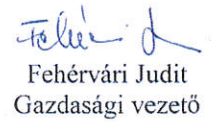 Fehérvári Judit
Gazdasági vezető